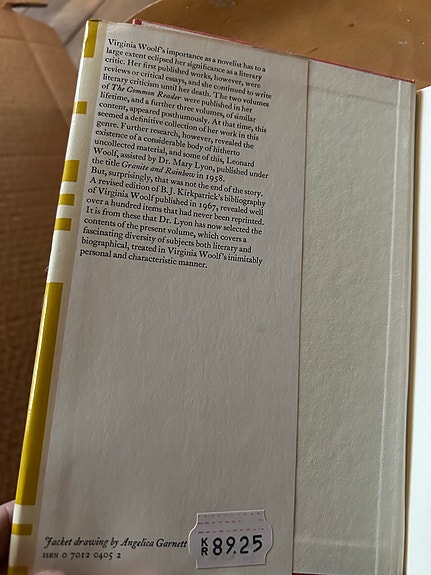 Virginia Woolf's importance as a novelist has to a
large extent eclipsed her significance as a literary
critic. Her first published works, however, were
reviews or critical essays, and she continued to write
literary criticism until her death. The two volumes
of The Common Reader were published in her
lifetime, and a further three volumes, of similar
content, appeared posthumously. At that time, this
seemed a definitive collection of her work in this
genre. Further research, however, revealed the
existence of a considerable body of hitherto
uncollected material, and some of this, Leonard
Woolf, assisted by Dr. Mary Lyon, published under
the title Granite and Rainbow in 1958.
But, surprisingly, that was not the end of the story.
A revised edition of B.J. Kirkpatrick's bibliography
of Virginia Woolf published in 1967, revealed well
over a hundred items that had never been reprinted.
It is from these that Dr. Lyon has now selected the
contents of the present volume, which covers a
fascinating diversity of subjects both literary and
biographical, treated in Virginia Woolf's inimitably
personal and characteristic manner.
Jacket drawing by Angelica Garnett
ISBN 0 7012 0405 2
KR 89.25